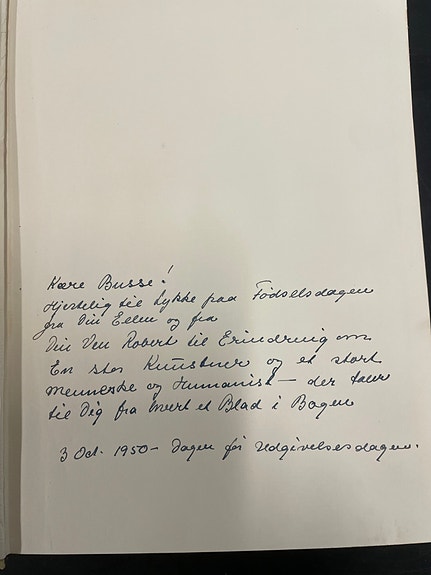 Kære Busse!
Hjertelig til Lykke paa Fødselsdagen
fra Din Ellen og fra
Din Ven Robert til Erindring om
En stor Kunstner og et stort
Menneske og Humanist – der taler
til Dig fra hvert et Blad i Bogen
3 Oct. 1950 – Dagen før Udgivelsesdagen.